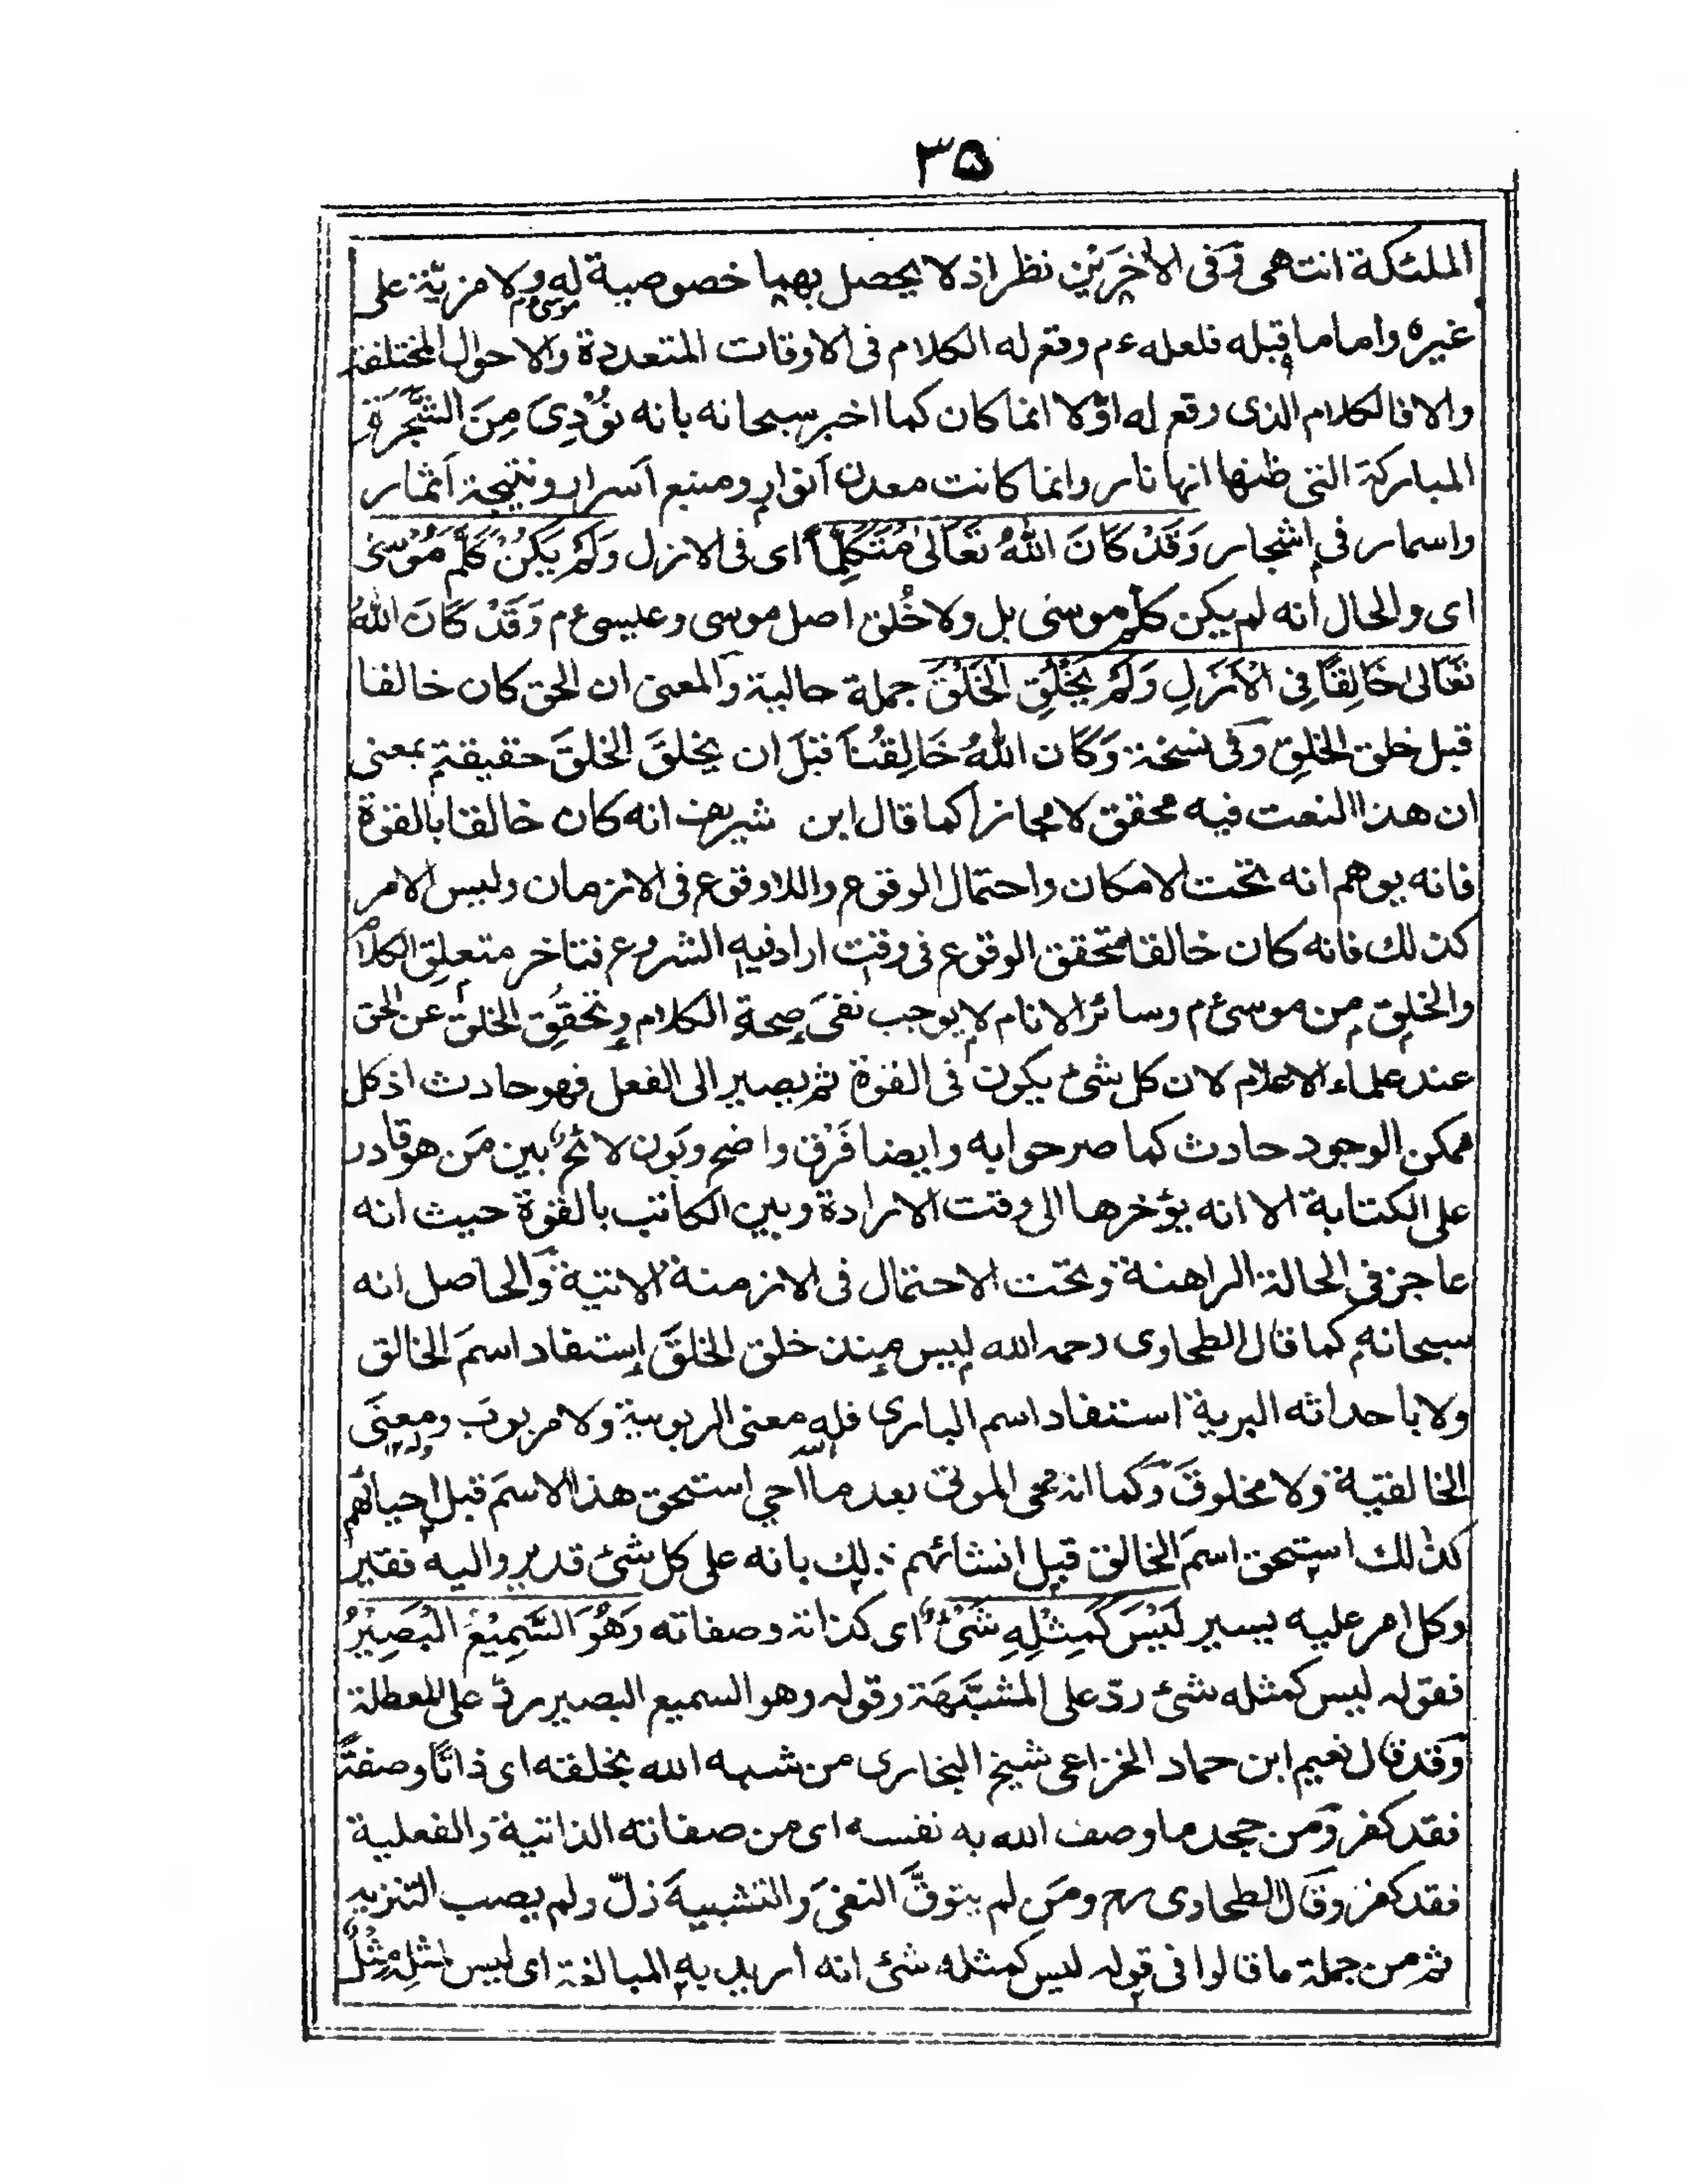 ٣٥
الملئكة انتهى وفى الاٰخرَيْن نظر اذ لا يحصل بهما خصوصية له ولا مزيّة على
موسى ع م
غيره واما ما قبله فلعله ع م وقع له الكلام فى الاوقات المتعددة والاحوال المختلفة
والا فالكلام الذى وقع له اوّلا انما كان كما اخبر سبحانه بانه نُوْدِىَ مِنَ الشَّجَرَةِ
المباركة التى ظنها انها نار وانما كانت معدن انوار ومنبع اَسرار ونتيجة اَثمار
واسمار فى اشجار وَقَدْ كَانَ اللّٰهُ تَعَالىٰ مُتَكَلِّمًا اى فى الازل وَلَمْ يَكُنْ كَلَّمَ مُوْسىٰ
اى والحال انه لم يكن كلّم موسىٰ بل ولا خُلق اصل موسى وعيسى ع م وَقَدْ كَانَ اللّٰهُ
تَعَالىٰ خَالِقًا فِى الْاَزَلِ وَلَمْ يَخْلُقِ الْخَلْقَ جملة حالية والمعنى ان الحق كان خالقا
قبل خلق الخلقِ وفى نسخة وَكَان اللّٰهُ خَالِقًا قبْلَ ان يخلقَ الخلقَ حقيقة بمعنى
ان هذا النعت فيه محقق لا مجازا كما قال ابن شريف انه كان خالقا بالقوة
فانه يوهم انه تحت الامكان واحتمال الوقوع واللاوقوع فى الازمان وليس الامر
كذلك فانه كان خالقا متحقق الوقوع فى وقت اراد فيه الشروع فتاخر متعلِق الكلام
والخلقِ من موسى ع م وسائر الانام لا يوجب نفىَ صحة الكلام وتحقُقِ الخلق عن الحق
عند علماء الاعلام لان كل شئ يكون فى القوة ثم يصير الى الفعل فهو حادث اذ كل
ممكن الوجود حادث كما صرحوا به وايضا فَرْق واضح وبَون لائح بين مَن هو قادر
على الكتابة الا انه يؤخرها الى وقت الارادة وبين الكاتب بالقوة حيث انه
عاجز فى الحالة الراهنة وتحت الاحتمال فى الازمنة الاتية والحاصل انه
سبحانه كما قال الطحاوى رحمه الله ليس منذ خلق الخلقَ اِستفاد اسمَ الخالق
ولا باحداثه البرية استفاد اسم البارى فله معنى الربوبية ولا مربوبَ ومعنَى
الخالقية ولا مخلوقَ وكما انه محى الموتى بعد ما احيى استحق هذا الاسمَ قبل احيائهم
كذلك استحق اسمَ الخالق قبل انشائهم ذلك بانه على كل شئ قدير واليه فقير
وكل امر عليه يسير لَيْسَ كَمِثْلِهِ شَىْءٌ اى كذاته وصفاته وَهُوَ السَّمِيْعُ الْبَصِيْرُ
فقوله ليس كمثله شئ ردّ على المشبّهَة وقوله وهو السميع البصير ردّ على المعطلة
وقد قال نعيم ابن حماد الخزاعى شيخ البخارى من شبه الله بخلقه اى ذاتًا وصفةً
فقد كفر ومن جحد ما وصف الله به نفسه اى من صفاته الذاتية والفعلية
فقد كفر وقال الطحاوى رح ومَن لم يتوقَّ النفىَ والتشبيهَ زلّ ولم يصب التنزيه
ثم من جملة ما قالوا فى قوله ليس كمثله شئ انه اريد به المبالغة اى ليس لمثلِه مِثْلٌ